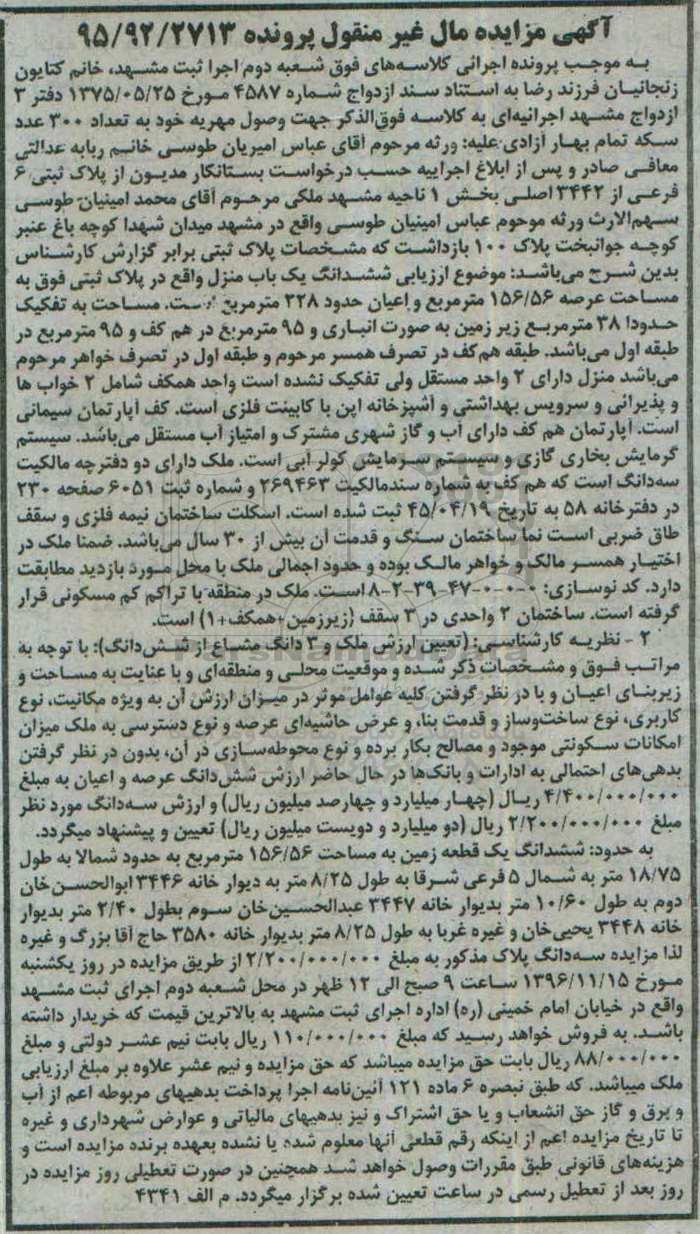 آگهی مزایده مال غیر منقول پرونده ۹۵/۹۲/۲۷۱۳
به موجب پرونده اجرائی کلاسه‌های فوق شعبه دوم اجرا ثبت مشهد، خانم کتایون
زنجانیان فرزند رضا به استناد سند ازدواج شماره ۴۵۸۷ مورخ ۱۳۷۵/۰۵/۲۵ دفتر ۳
ازدواج مشهد اجرائیه‌ای به کلاسه فوق‌الذکر جهت وصول مهریه خود به تعداد ۳۰۰ عدد
سکه تمام بهار آزادی علیه: ورثه مرحوم آقای عباس امیریان طوسی خانم ربابه عدالتی
معافی صادر و پس از ابلاغ اجراییه حسب درخواست بستانکار مدیون از پلاک ثبتی ۶
فرعی از ۳۴۴۲ اصلی بخش ۱ ناحیه مشهد ملکی مرحوم آقای محمد امینیان طوسی
سهم‌الارث ورثه موحوم عباس امینیان طوسی واقع در مشهد میدان شهدا کوچه باغ عنبر
کوچه جوانبخت پلاک ۱۰۰ بازداشت که مشخصات پلاک ثبتی برابر گزارش کارشناس
بدین شرح می‌باشد: موضوع ارزیابی ششدانگ یک باب منزل واقع در پلاک ثبتی فوق به
مساحت عرصه ۱۵۶/۵۶ مترمربع و اعیان حدود ۲۲۸ مترمربع است. مساحت به تفکیک
حدودا ۳۸ مترمربع زیر زمین به صورت انباری و ۹۵ مترمربع در هم کف و ۹۵ مترمربع در
طبقه اول می‌باشد. طبقه هم‌کف در تصرف همسر مرحوم و طبقه اول در تصرف خواهر مرحوم
می‌باشد منزل دارای ۲ واحد مستقل ولی تفکیک نشده است واحد همکف شامل ۲ خواب ها
و پذیرانی و سرویس بهداشتی و آشپزخانه اپن با کابینت فلزی است. کف آپارتمان سیمانی
است. آپارتمان هم کف دارای آب و گاز شهری مشترک و امتیاز آب مستقل می‌باشد. سیستم
گرمایش بخاری گازی و سیستم سرمایش کولر آبی است. ملک دارای دو دفترچه مالکیت
سه‌دانگ است که هم کف به شماره سندمالکیت ۲۶۹۴۶۳ و شماره ثبت ۶۰۵۱ صفحه ۲۳۰
در دفترخانه ۵۸ به تاریخ ۴۵/۰۴/۱۹ ثبت شده است. اسکلت ساختمان نیمه فلزی و سقف
طاق ضربی است نما ساختمان سنگ و قدمت آن بیش از ۳۰ سال می‌باشد. ضمنا ملک در
اختیار همسر مالک و خواهر مالک بوده و حدود اجمالی ملک با محل مورد بازدید مطابقت
دارد. کد نوسازی: ۰-۰-۰-۴۷-۳۹-۲-۸ است. ملک در منطقه با تراکم کم مسکونی قرار
گرفته است. ساختمان ۲ واحدی در ۳ سقف (زیرزمین+همکف+۱) است.
۲ - نظریه کارشناسی: (تعیین ارزش ملک و ۳ دانگ مشاع از شش‌دانگ): با توجه به
مراتب فوق و مشخصات ذکر شده و موقعیت محلی و منطقه‌ای و با عنایت به مساحت و
زیربنای اعیان و با در نظر گرفتن کلیه عوامل موثر در میزان ارزش آن به ویژه مکانیت، نوع
کاربری، نوع ساخت‌وساز و قدمت بنا، و عرض حاشیه‌ای عرصه و نوع دسترسی به ملک میزان
امکانات سکونتی موجود و مصالح بکار برده و نوع محوطه‌سازی در آن، بدون در نظر گرفتن
بدهی‌های احتمالی به ادارات و بانک‌ها در حال حاضر ارزش شش‌دانگ عرصه و اعیان به مبلغ
۴/۴۰۰/۰۰۰/۰۰۰ ریال (چهار میلیارد و چهارصد میلیون ریال) و ارزش سه‌دانگ مورد نظر
مبلغ ۲/۲۰۰/۰۰۰/۰۰۰ ریال (دو میلیارد و دویست میلیون ریال) تعیین و پیشنهاد میگردد.
به حدود: ششدانگ یک قطعه زمین به مساحت ۱۵۶/۵۶ مترمربع به حدود شمالا به طول
۱۸/۷۵ متر به شمال ۵ فرعی شرقا به طول ۸/۲۵ متر به دیوار خانه ۳۴۴۶ ابوالحسن‌خان
دوم به طول ۱۰/۶۰ متر بدیوار خانه ۳۴۴۷ عبدالحسین‌خان سوم بطول ۲/۴۰ متر بدیوار
خانه ۳۴۴۸ یحیی‌خان و غیره غربا به طول ۸/۲۵ متر بدیوار خانه ۳۵۸۰ حاج آقا بزرگ و غیره
لذا مزایده سه‌دانگ پلاک مذکور به مبلغ ۲/۲۰۰/۰۰۰/۰۰۰ از طریق مزایده در روز یکشنبه
مورخ ۱۳۹۶/۱۱/۱۵ ساعت ۹ صبح الی ۱۲ ظهر در محل شعبه دوم اجرای ثبت مشهد
واقع در خیابان امام خمینی (ره) اداره اجرای ثبت مشهد به بالاترین قیمت که خریدار داشته
باشد. به فروش خواهد رسید که مبلغ ۱۱۰/۰۰۰/۰۰۰ ریال بابت نیم عشر دولتی و مبلغ
۸۸/۰۰۰/۰۰۰ ریال بابت حق مزایده میباشد که حق مزایده و نیم عشر علاوه بر مبلغ ارزیابی
ملک میباشد. که طبق تبصره ۶ ماده ۱۲۱ آئین‌نامه اجرا پرداخت بدهیهای مربوطه اعم از آب
و برق و گاز حق انشعاب و یا حق اشتراک و نیز بدهیهای مالیاتی و عوارض شهرداری و غیره
تا تاریخ مزایده اعم از اینکه رقم قطعی آنها معلوم شده یا نشده بعهده برنده مزایده است و
هزینه‌های قانونی طبق مقررات وصول خواهد شد همچنین در صورت تعطیلی روز مزایده در
روز بعد از تعطیل رسمی در ساعت تعیین شده برگزار میگردد. م الف ۴۳۴۱